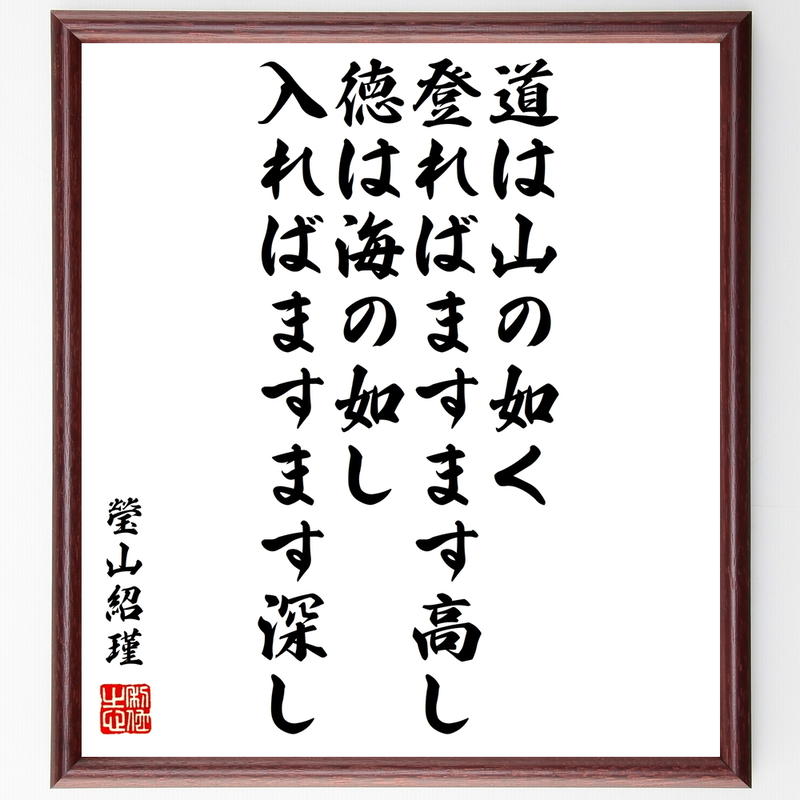 道は山の如く
登ればますます高し
徳は海の如し
入ればますます深し
瑩山紹瑾